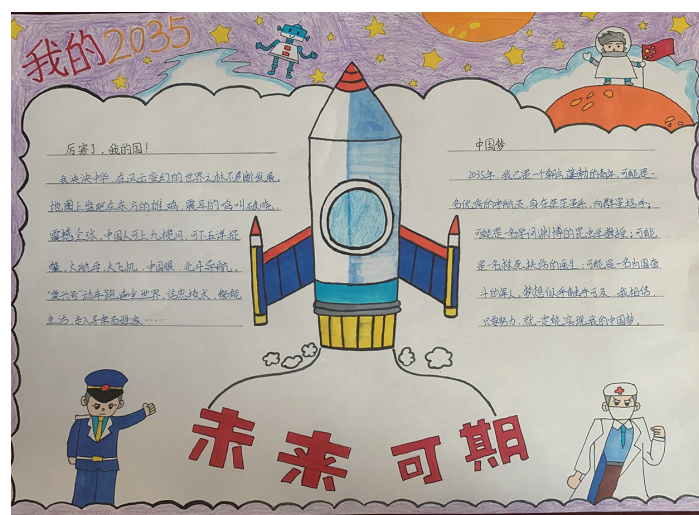 我的2035
厉害了，我的国！
我泱泱中华，在风云变幻的世界之林不断发展，
地图上盘踞在东方的雄鸡，震耳的鸣叫破晓，
震撼全球，中国人可上九揽月，可下五洋捉
鳖，大航母，大飞机，中国眼，北斗导航，
"复兴号"动车跑遍全世界，信息技术，智能
生活，走入寻常百姓家……
中国梦
2035年，我已是一个朝气蓬勃的青年，可能是一
名优秀的宇航员，身在茫茫星系，向群星招手；
可能是一名学识渊博的昆虫学教授；可能
是一名救死扶伤的医生；可能是一名为国奋
斗的军人，梦想似乎触手可及，我相信，
只要努力，就一定能实现我的中国梦。
未来可期